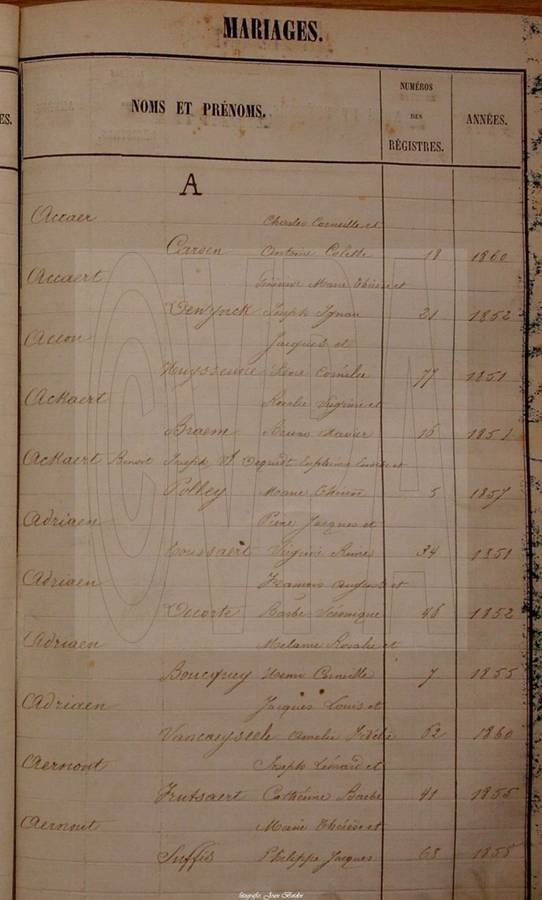 MARIAGES.
ES.
NOMS ET PRÉNOMS.
NUMÉROS
DES
RÉGISTRES.
ANNÉES.
A
Accaer Charles Corneille et
Carden Antoine Colette 18 1860
Accaert Marie Thérèse et
Denynck Joseph Ignace 21 1852
Accou Jacques et
Huysseune Rose Cornélie 77 1851
Ackaert Rosalie Virginie et
Braem Bruno Xavier 15 1851
Ackaert Benoit Joseph et
Polley Marie Thérèse 5 1857
Adriaen Pierre Jacques et
Toussaert Virginie Reine 34 1851
Adriaen François et
Decorte Barbe Véronique 46 1852
Adriaen Mélanie Rosalie et
Boucquey Henri Corneille 7 1855
Adriaen Jacques Louis et
Vancuyseele Amelie Fidèle 62 1860
Aernout Joseph Léonard et
Frutsaert Cathérine Barbe 41 1855
Aernout Marie Thérèse et
Suffis Philippe Jacques 63 1855
CVBA
fotografie: